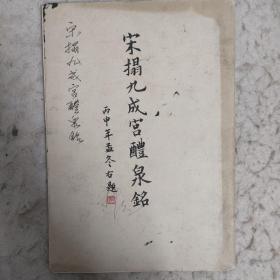 宋搨九成宮醴泉銘
丙申年孟冬右題
宋搨九成宮醴泉銘